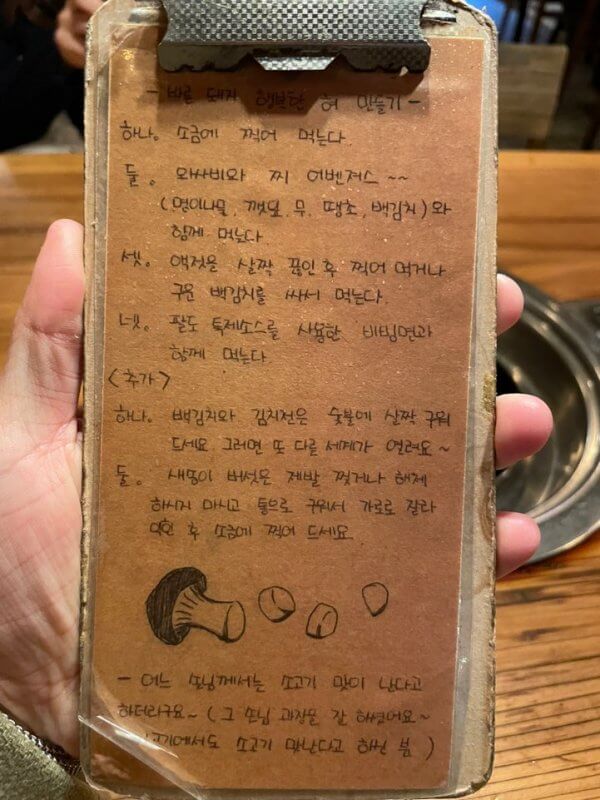 - 바를 돼지 행복한 혀 만들기 -
하나。 소금에 찍어 먹는다.
둘。 와사비와 찌 어벤져스 ~~
(명이나물, 깻잎, 무, 땡초, 백김치)와
함께 먹는다
셋。 액젓을 살짝 끓인 후 찍어 먹거나
구운 백김치를 싸서 먹는다.
넷。 팔도 특제소스를 사용한 비빔면과
함께 먹는다
<추가>
하나。 백김치와 김치전은 숯불에 살짝 구워
드세요. 그러면 또 다를 세계가 열려요~
둘。 새송이 버섯은 제발 찢거나 해체
하시지 마시고 통으로 구워서 가로로 잘라
익힌 후 소금에 찍어 드세요.
- 어느 손님께서는 소고기 맛이 난다고
하더라구요~ (그 손님 과장을 잘 하셨어요~
고기에서도 소고기 맛난다고 하신 분)